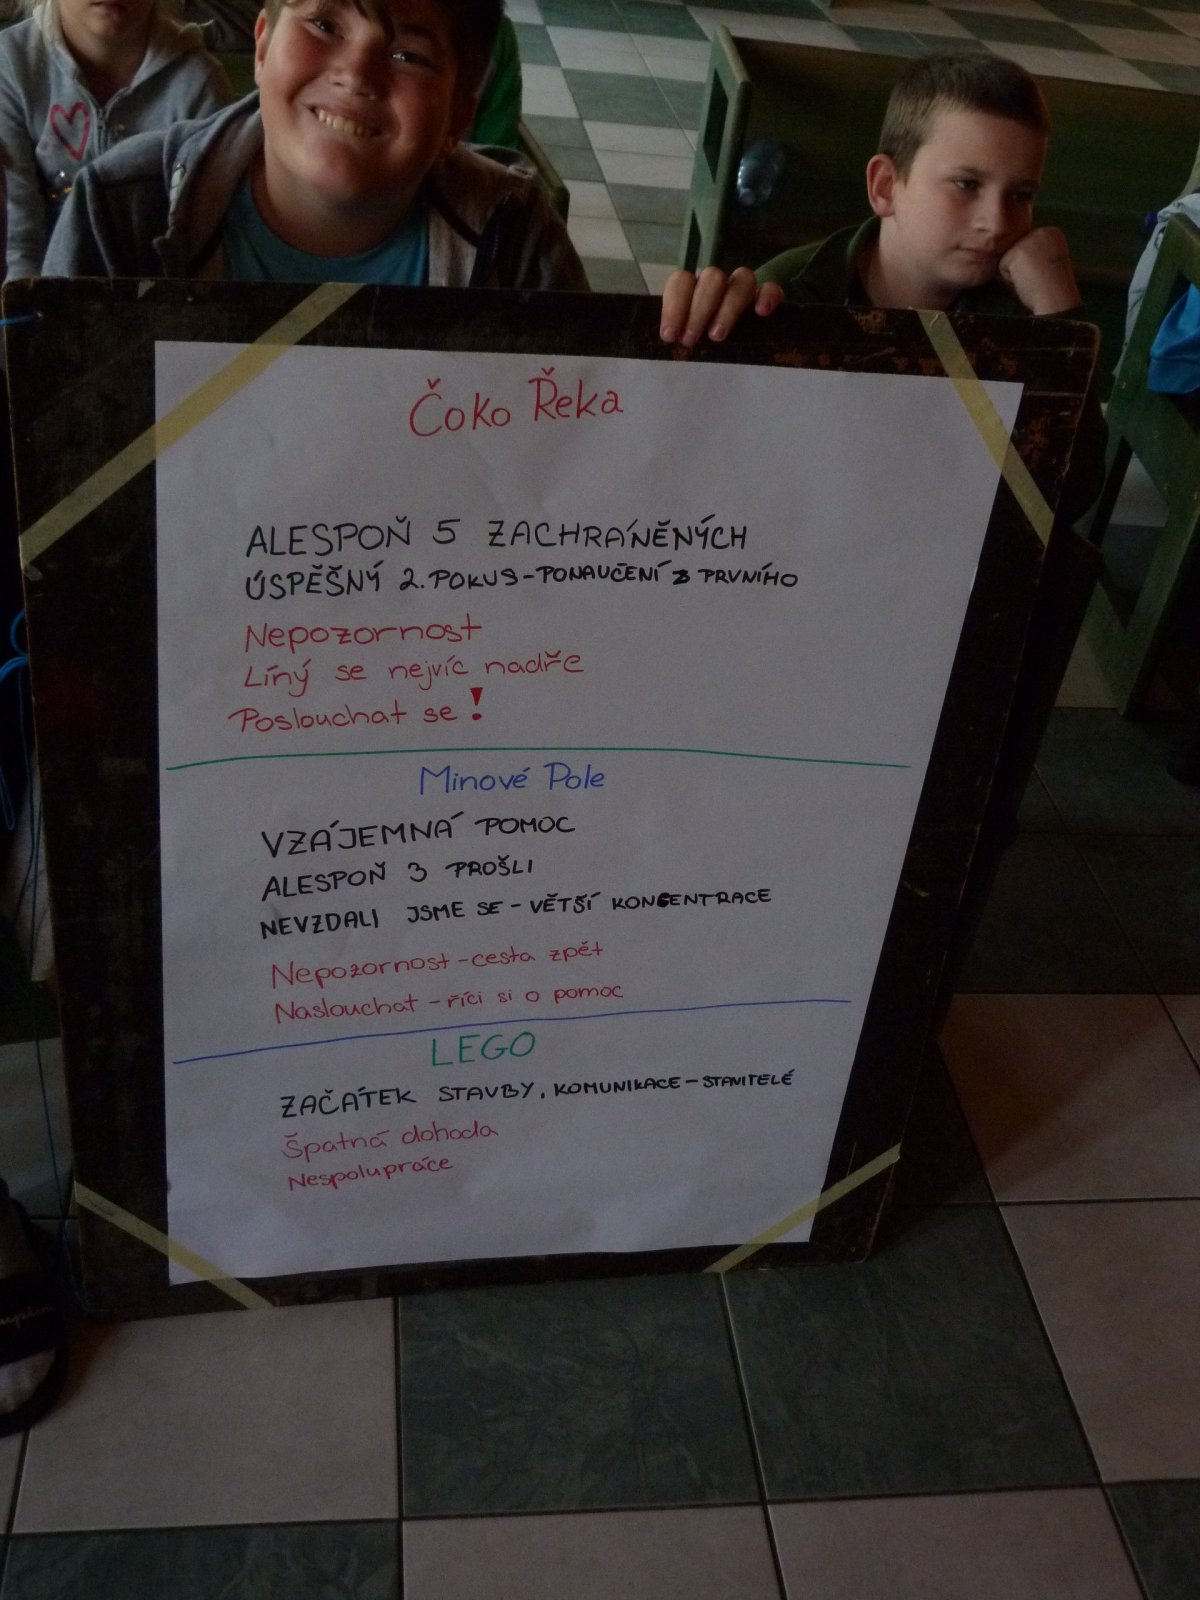 Čoko Řeka
ALESPOŇ 5 ZACHRÁNĚNÝCH
ÚSPĚŠNÝ 2. POKUS - PONAUČENÍ Z PRVNÍHO
Nepozornost
Líný se nejvíc nadře
Poslouchat se!
Minové Pole
VZÁJEMNÁ POMOC
ALESPOŇ 3 PROŠLI
NEVZDALI JSME SE - VĚTŠÍ KONCENTRACE
Nepozornost - cesta zpět
Naslouchat - říci si o pomoc
LEGO
ZAČÁTEK STAVBY, KOMUNIKACE - STAVITELÉ
Špatná dohoda
Nespolupráce